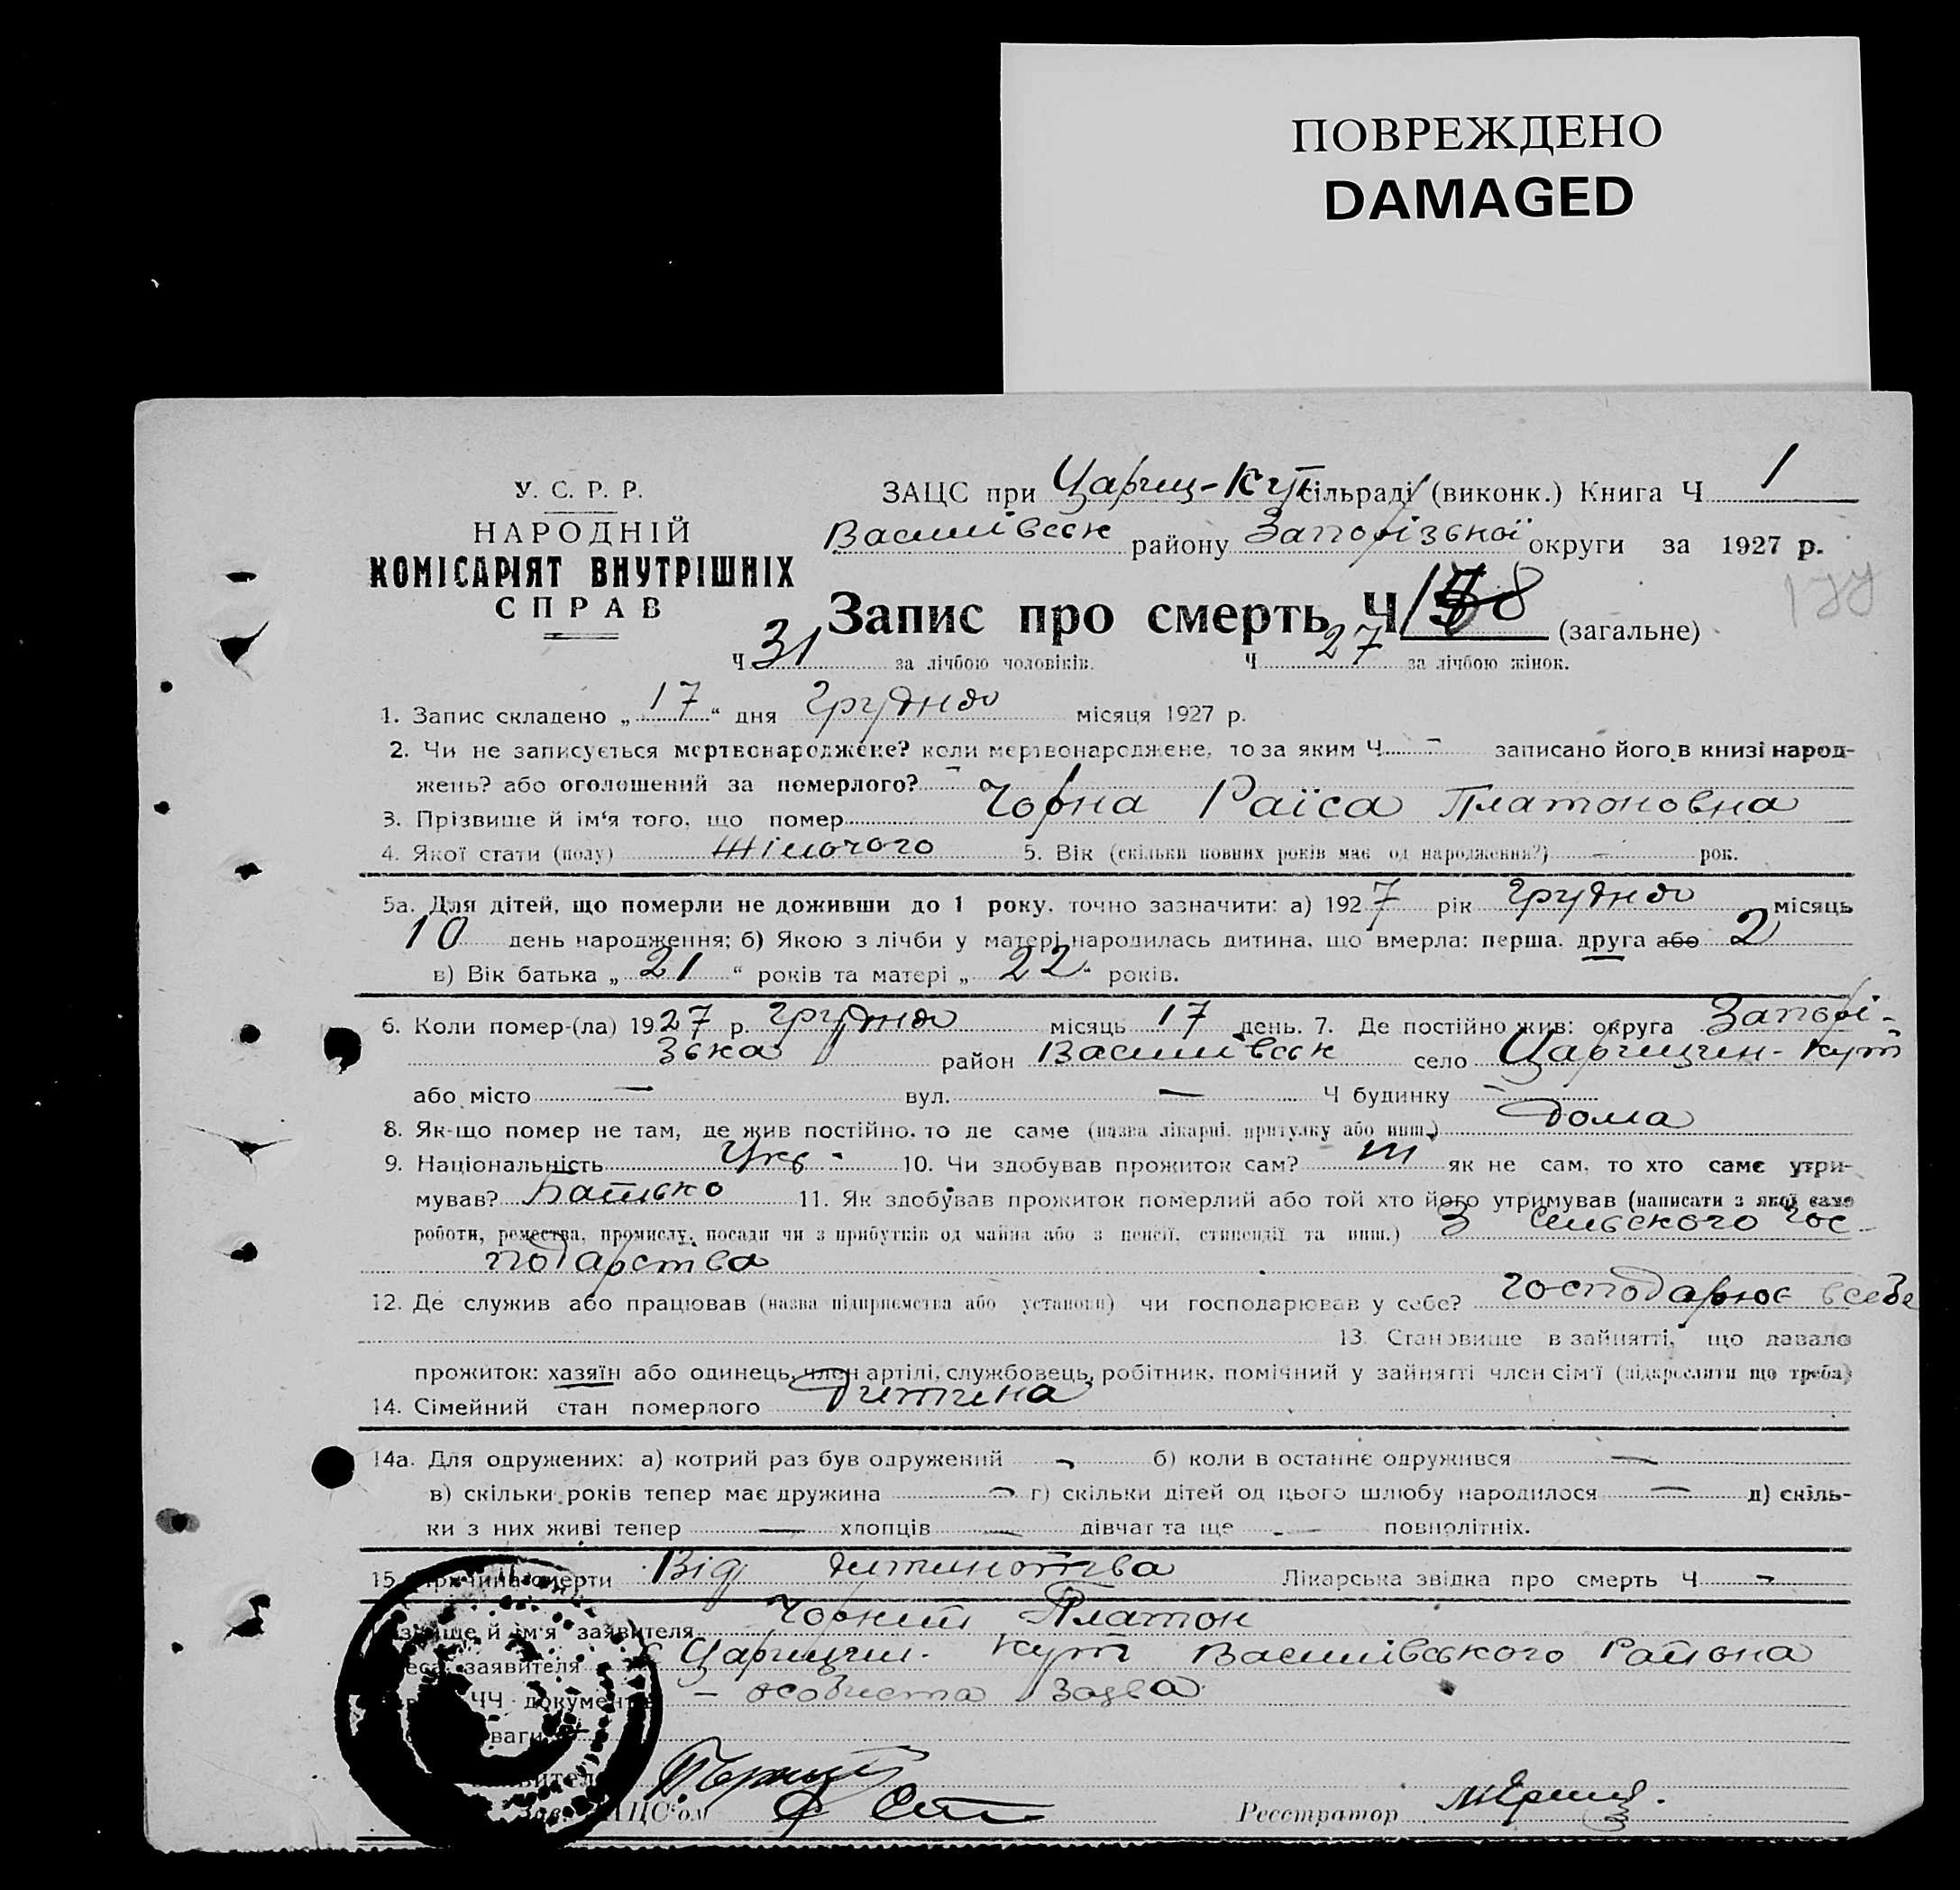 ПОВРЕЖДЕНО
DAMAGED
У. С. Р. Р.
НАРОДНІЙ
КОМІСАРІЯТ ВНУТРІШНІХ
СПРАВ
ЗАЦС при Царищ-Кут сільраді (виконк.) Книга Ч 1
Василівськ району Запорізької округи за 1927 р.
Запис про смерть Ч 58 (загальне)
Ч 31 за лічбою чоловіків. Ч 27 за лічбою жінок.
1. Запис складено „ 17 “ дня Грудня місяця 1927 р.
2. Чи не записується мертвонароджене? коли мертвонароджене, то за яким Ч - записано його в книзі народ-
жень? або оголошений за померлого? -
3. Прізвище й ім'я того, що помер Чорна Раїса Платоновна
4. Якої стати (полу) Жіночого 5. Вік (скільки повних років має од народження?) - рок.
5а. Для дітей, що померли не доживши до 1 року, точно зазначити: а) 1927 рік Грудня місяць
10 день народження; б) Якою з лічби у матері народилась дитина, що вмерла: перша, друга або 2
в) Вік батька „ 21 “ років та матері „ 22 “ років.
6. Коли помер-(ла) 1927 р. Грудня місяць 17 день. 7. Де постійно жив: округа Запорі-
зька район Василівськ село Царицин-Кут
або місто — вул. — Ч будинку -
8. Як-що помер не там, де жив постійно, то де саме (назва лікарні, притулку або инш.) Дома
9. Національність Укр - 10. Чи здобував прожиток сам? ні як не сам, то хто саме утри-
мував? Батько 11. Як здобував прожиток померлий або той хто його утримував (написати з якої саме
роботи, ремества, промислу, посади чи з прибутків од майна або з пенсії, стипендії та инш.) З сільського гос-
подарства
12. Де служив або працював (назва підприємства або установи) чи господарював у себе? господарює в себе
13. Становище в зайнятті, що давало
прожиток: хазяїн або одинець, член артілі, службовець, робітник, помічний у зайнятті член сім'ї (підкреслити що треба)
14. Сімейний стан померлого Дитина
14а. Для одружених: а) котрий раз був одружений - б) коли в останнє одружився —
в) скільки років тепер має дружина - г) скільки дітей од цього шлюбу народилося — д) скіль-
ки з них живі тепер — хлопців — дівчат та ще - повнолітніх.
15. Причина смерти Від Лікарська звідка про смерть Ч -
й ім'я заявителя Чорний Платон
заявителя с Царицин. Кут Василівського Району
ЧЧ документ - особиста Заява
Реєстратор